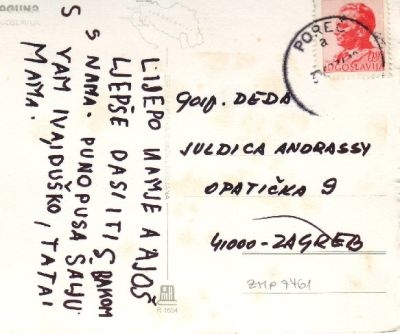 LIJEPO NAM JE A JOŠ
LJEPŠE DA SI I TI S BAKOM
S NAMA. PUNO PUSA ŠALJU
VAM IVA, DUŠKO, TATA I
MAMA.
POREČ
a
JUGOSLAVIJA
gosp. DEDA
JULDICA ANDRASSY
OPATIČKA 9
41000-ZAGREB
ZMP 7461